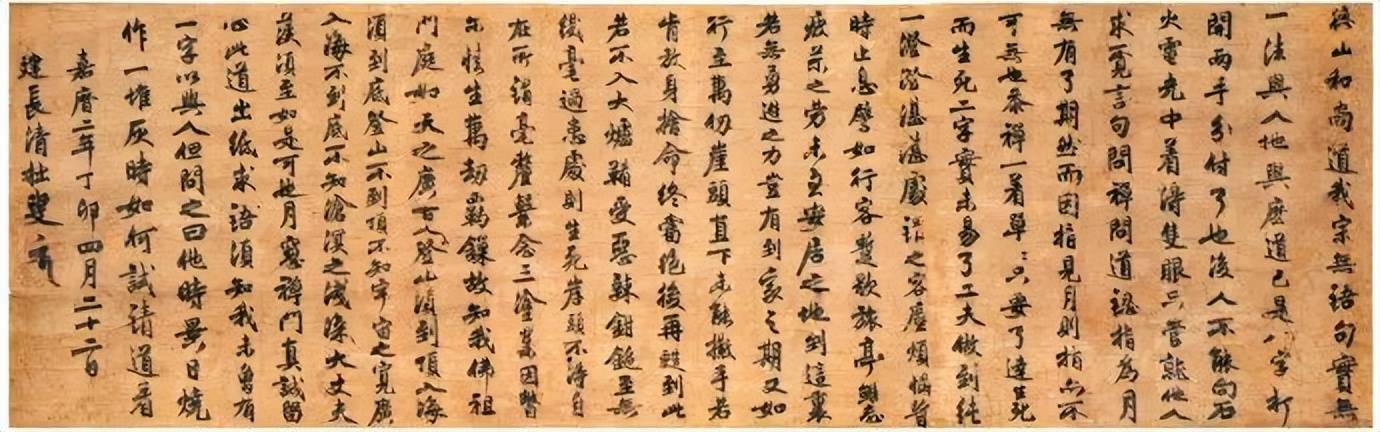 德山和尚道我宗無語句實無
一法與人他與麽道已是八字打
開兩手分付了也後人不能向石
火電光中着得隻眼只管就他人
求覓言句問禪問道認指為月
無有了期然而因指見月則指亦不
可無也參禪一着單〻只要了達生死
而生死二字實未易了工夫做到純
一澄澄湛湛處謂之客塵煩惱暫
時止息譬如行客暫歇旅亭雖忘
疲苶之勞未至安居之地到這裏
若無勇進之力豈有到家之期又如
行至萬仞崖頭直下未能撒手若
肯放身捨命終當絕後再甦到此
若不入大爐鞴受惡辣鉗鎚至無
纖毫過患處則生死岸頭不得自
在所謂毫釐繫念三塗業因瞥
尔情生萬劫羈鎖故知我佛祖
門庭如天之廣古人登山須到頂入海
須到底登山不到頂不知宇宙之寬廣
入海不到底不知滄溟之淺深大丈夫
漢須至如是可也月窓禪門真誠留
心此道出紙求語須知我未曾有
一字以與人但問之曰他時異日燒
作一堆灰時如何試請道看
嘉曆二年丁卯四月二十二日
建長清拙叟